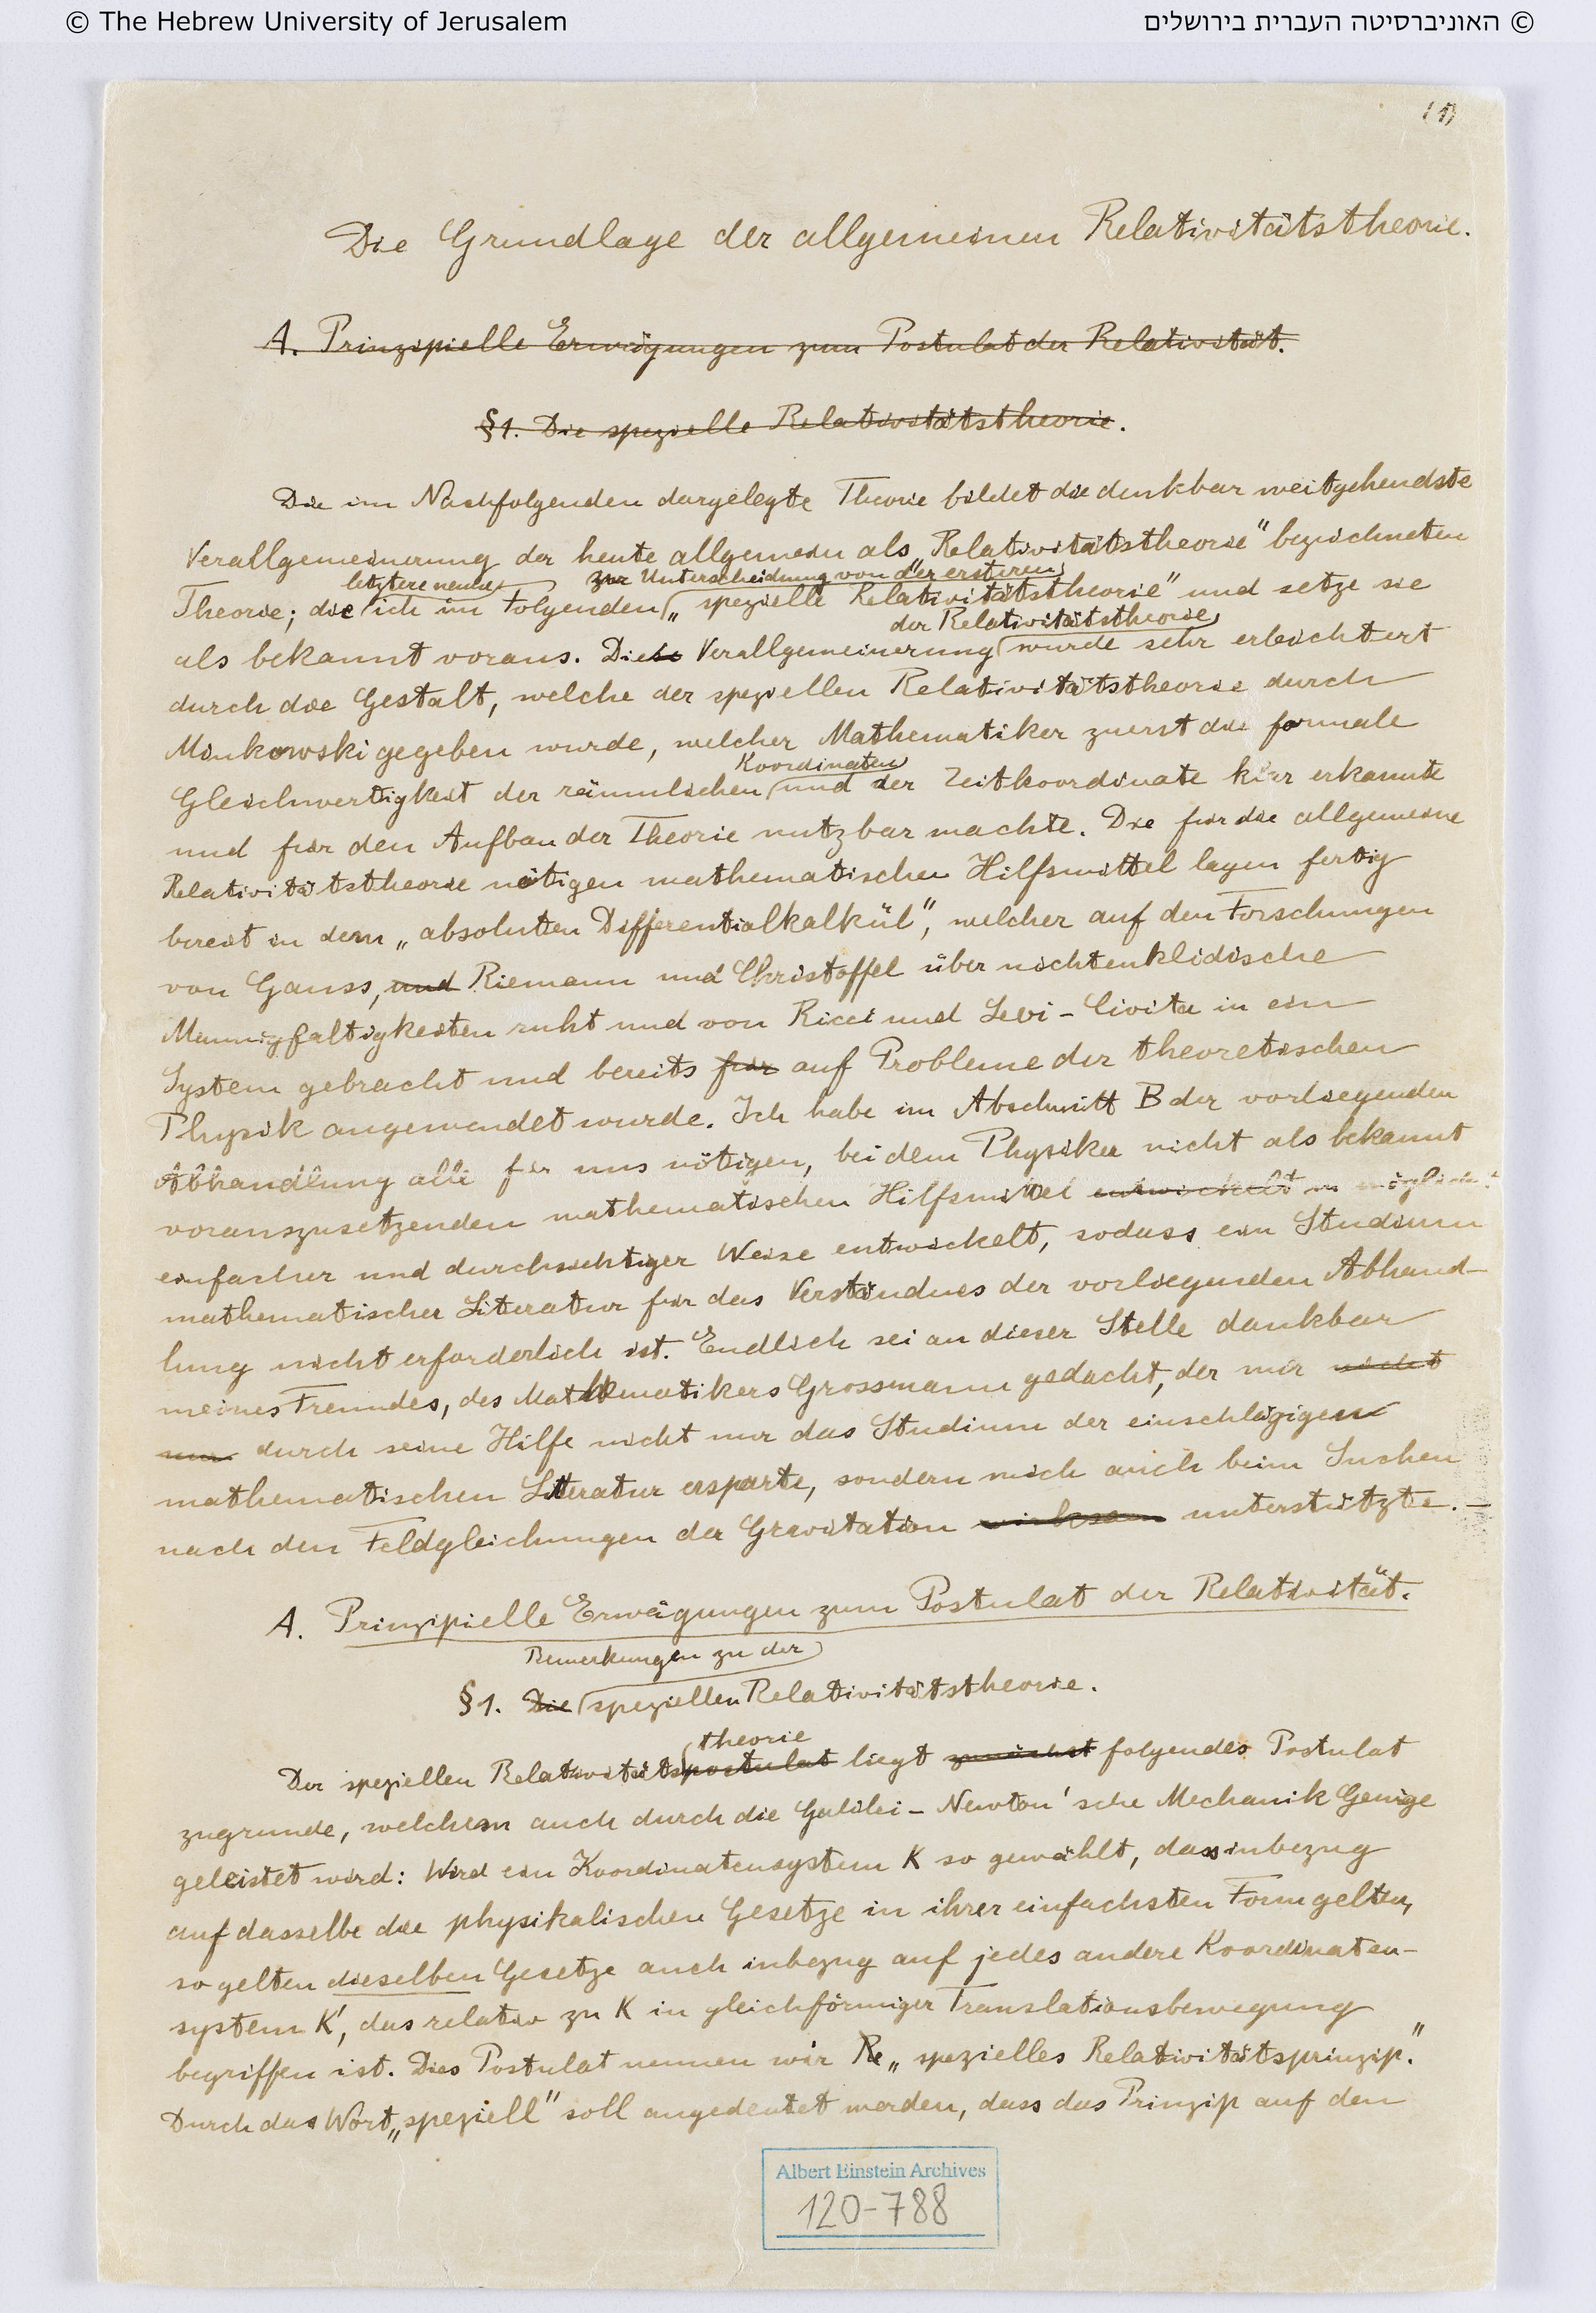 © The Hebrew University of Jerusalem
האוניברסיטה העברית בירושלים ©
(1)
Die Grundlage der allgemeinen Relativitätstheorie.
A. Prinzipielle Erwägungen zum Postulat der Relativität.
§1. Die spezielle Relativitätstheorie.
Die im Nachfolgenden dargelegte Theorie bildet die denkbar weitgehendste
Verallgemeinerung der heute allgemein als „Relativitätstheorie“ bezeichneten
letztere nenne zur Unterscheidung von der ersteren
Theorie; die ich im Folgenden „spezielle Relativitätstheorie“ und setze sie
der Relativitätstheorie
als bekannt voraus. Diese Verallgemeinerung wurde sehr erleichtert
durch die Gestalt, welche der speziellen Relativitätstheorie durch
Minkowski gegeben wurde, welcher Mathematiker zuerst die formale
Koordinaten
Gleichwertigkeit der räumlichen und der Zeitkoordinate klar erkannte
und für den Aufbau der Theorie nutzbar machte. Die für die allgemeine
Relativitätstheorie nötigen mathematischen Hilfsmittel lagen fertig
bereit in dem „absoluten Differentialkalkül“, welcher auf den Forschungen
von Gauss, und Riemann und Christoffel über nichteuklidische
Mannigfaltigkeiten ruht und von Ricci und Levi-Civita in ein
System gebracht und bereits für auf Probleme der theoretischen
Physik angewendet wurde. Ich habe im Abschnitt B der vorliegenden
Abhandlung alle für uns nötigen, bei dem Physiker nicht als bekannt
vorauszusetzenden mathematischen Hilfsmittel entwickelt in möglichst
einfacher und durchsichtiger Weise entwickelt, sodass ein Studium
mathematischer Literatur für das Verständnis der vorliegenden Abhand-
lung nicht erforderlich ist. Endlich sei an dieser Stelle dankbar
meines Freundes, des Mathematikers Grossmann gedacht, der mir nicht
nur durch seine Hilfe nicht nur das Studium der einschlägigen
mathematischen Literatur ersparte, sondern mich auch beim Suchen
nach den Feldgleichungen der Gravitation wirksam unterstützte. —
A. Prinzipielle Erwägungen zum Postulat der Relativität.
Bemerkungen zu der
§1. Die speziellen Relativitätstheorie.
theorie
Der speziellen Relativitätspostulat liegt zunächst folgendes Postulat
zugrunde, welchem auch durch die Galilei-Newton'sche Mechanik Genüge
geleistet wird: Wird ein Koordinatensystem K so gewählt, dass inbezug
auf dasselbe die physikalischen Gesetze in ihrer einfachsten Form gelten,
so gelten dieselben Gesetze auch inbezug auf jedes andere Koordinaten-
system K', das relativ zu K in gleichförmiger Translationsbewegung
begriffen ist. Dies Postulat nennen wir Re „spezielles Relativitätsprinzip.“
Durch das Wort „speziell“ soll angedeutet werden, dass das Prinzip auf den
Albert Einstein Archives
120-788